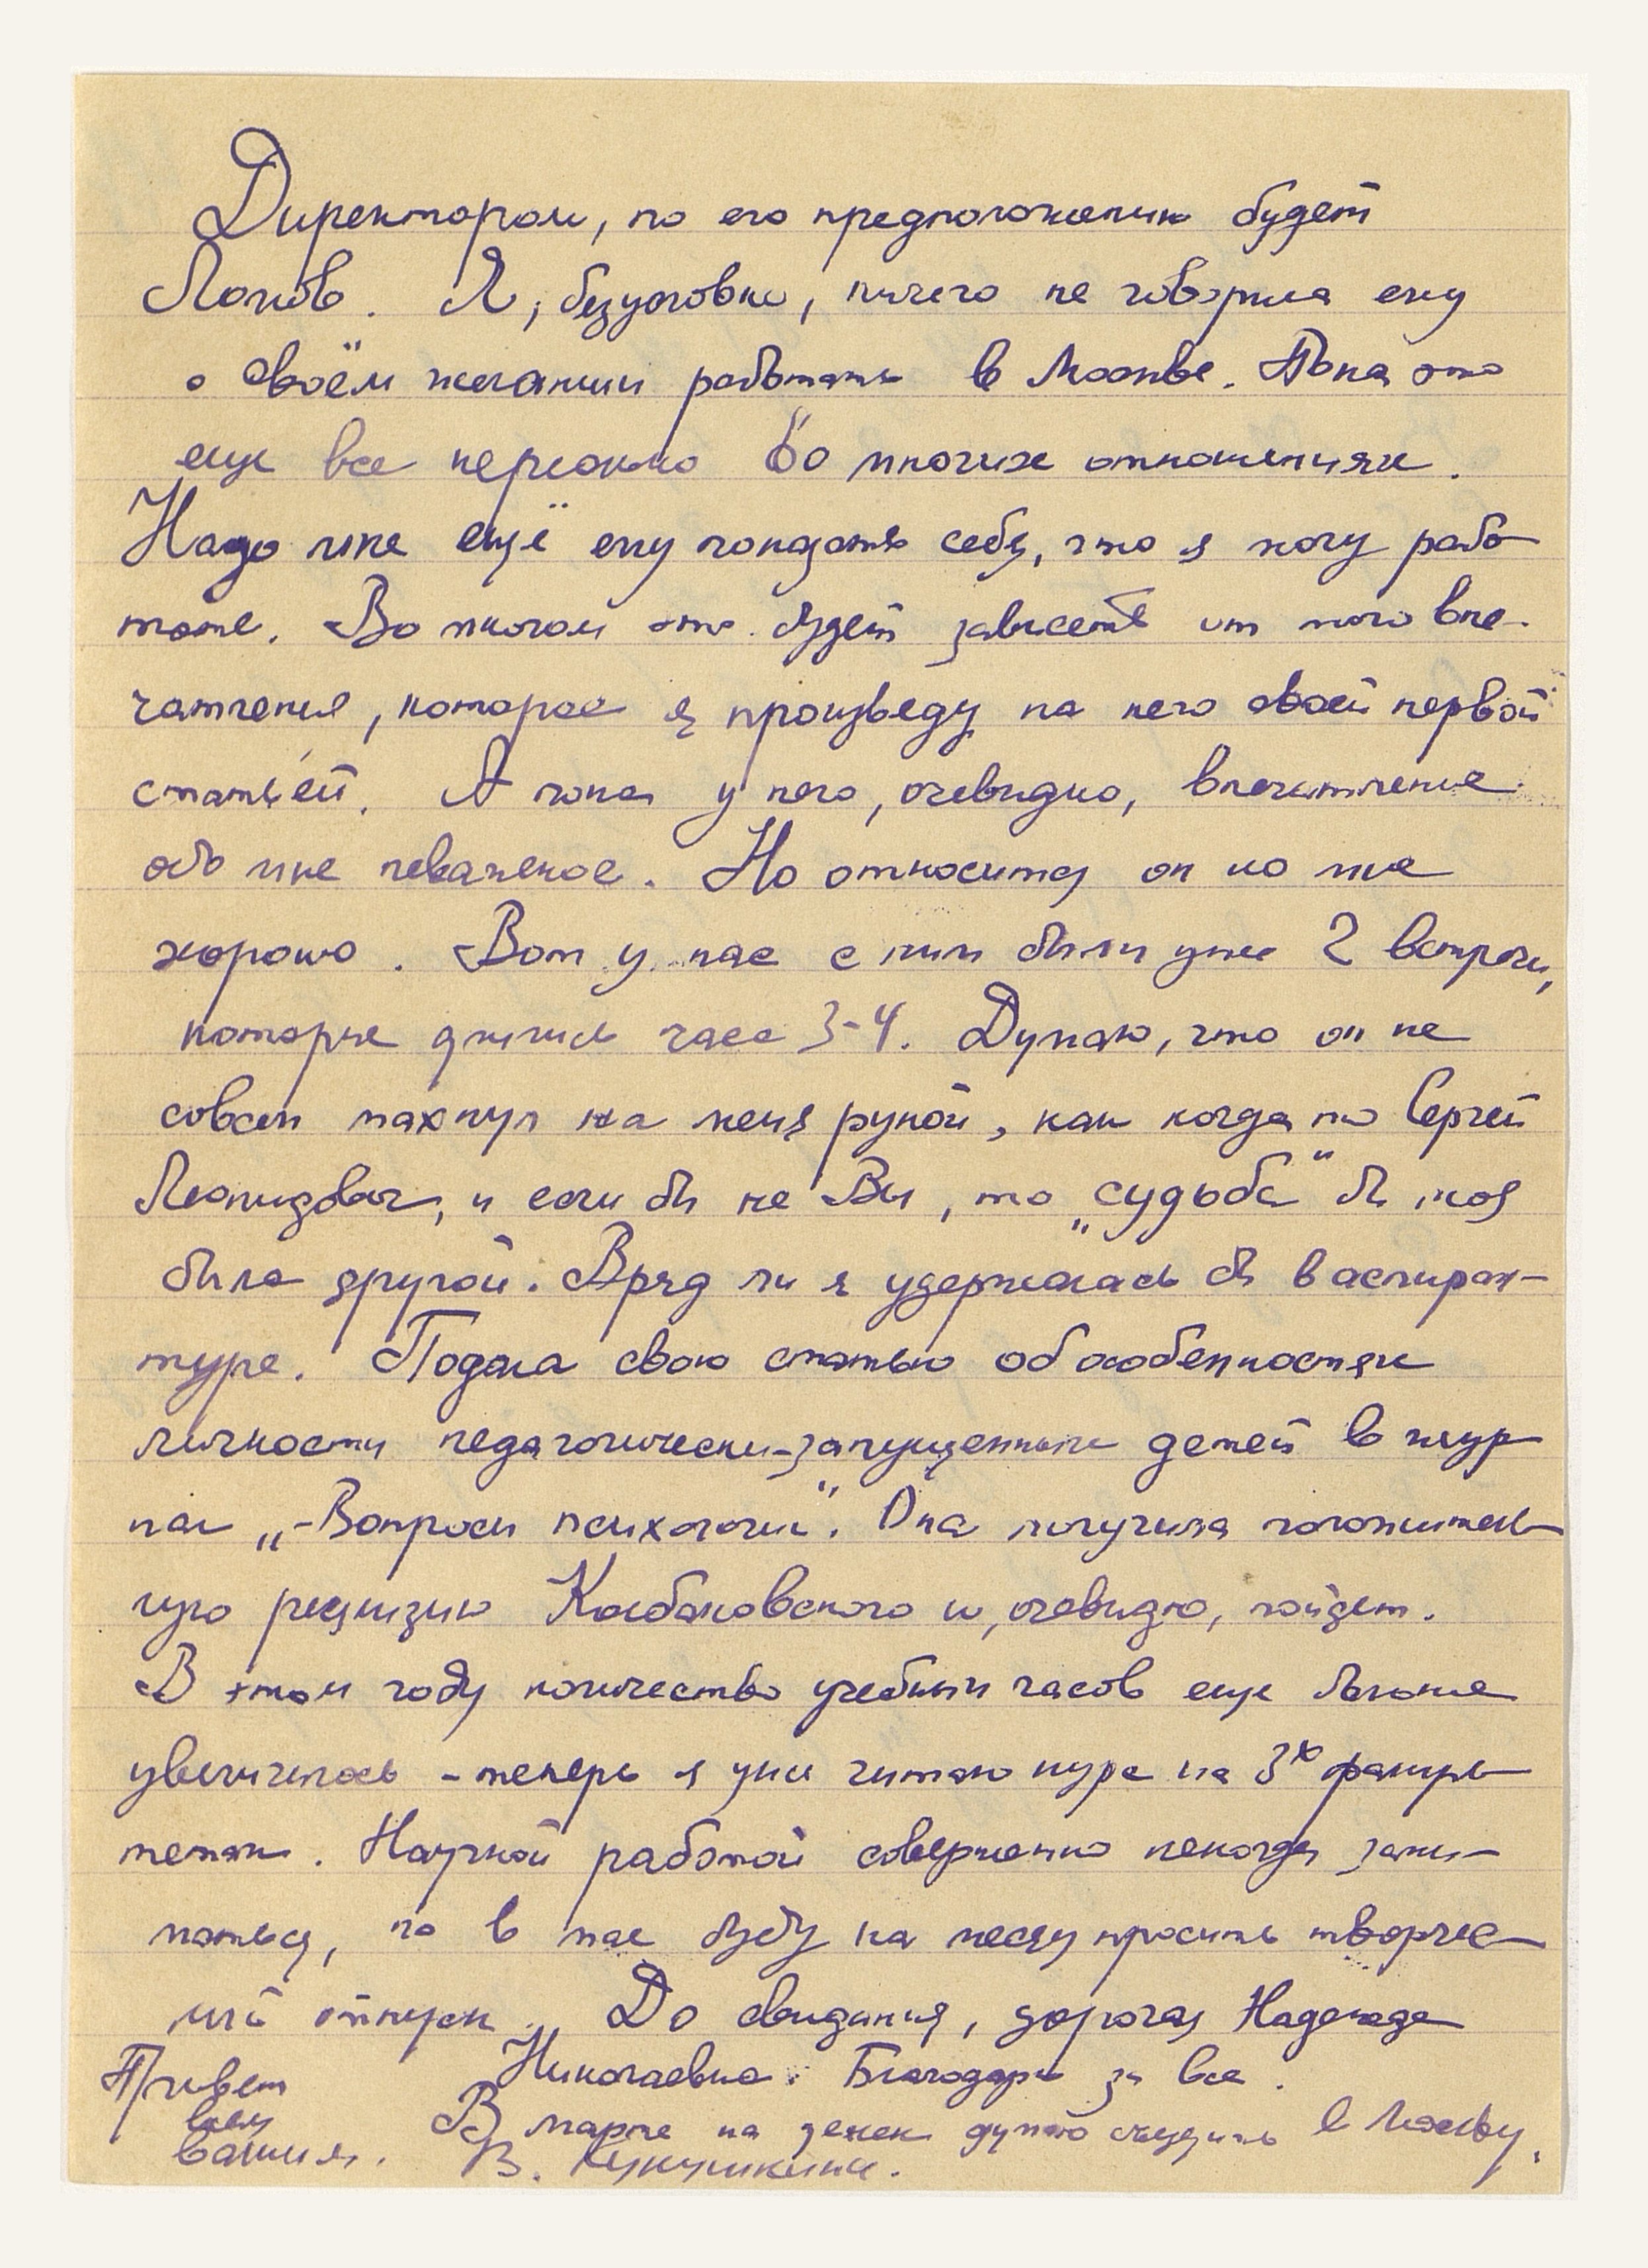 Директором, по его предположению будет
Попов. Я, безусловно, ничего не говорила ему
о своём желании работать в Москве. Пока это
еще все нереально во многих отношениях.
Надо мне ещё ему показать себя, что я могу рабо
тать. Во многом это будет зависеть от того впе-
чатления, которое я произведу на него своей первой
статьёй. А пока у него, очевидно, впечатление
обо мне неважное. Но относится он ко мне
хорошо. Вот у нас с ним были уже 2 встречи,
которые длились часа 3-4. Думаю, что он не
совсем махнул на меня рукой, как когда то Сергей
Леонидович, и если бы не Вы, то „судьба" бы моя
была другой. Вряд ли я удержалась бы в аспиран-
туре. Подала свою статью об особенностях
личности педагогически-запущенных детей в жур
нал „Вопросы психологии". Она получила положитель
ную рецензию Колбановского и, очевидно, пойдет.
В этом году количество учебных часов еще больше
увеличилось - теперь я уже читаю курс на 3х факуль
тетах. Научной работой совершенно некогда зани-
маться, но в мае буду на месяц просить творчес
кий отпуск. До свидания, дорогая Надежда
Николаевна. Благодарю за все.
Привет
всем
Вашим.
В марте на денек думаю съездить в Москву.
В.